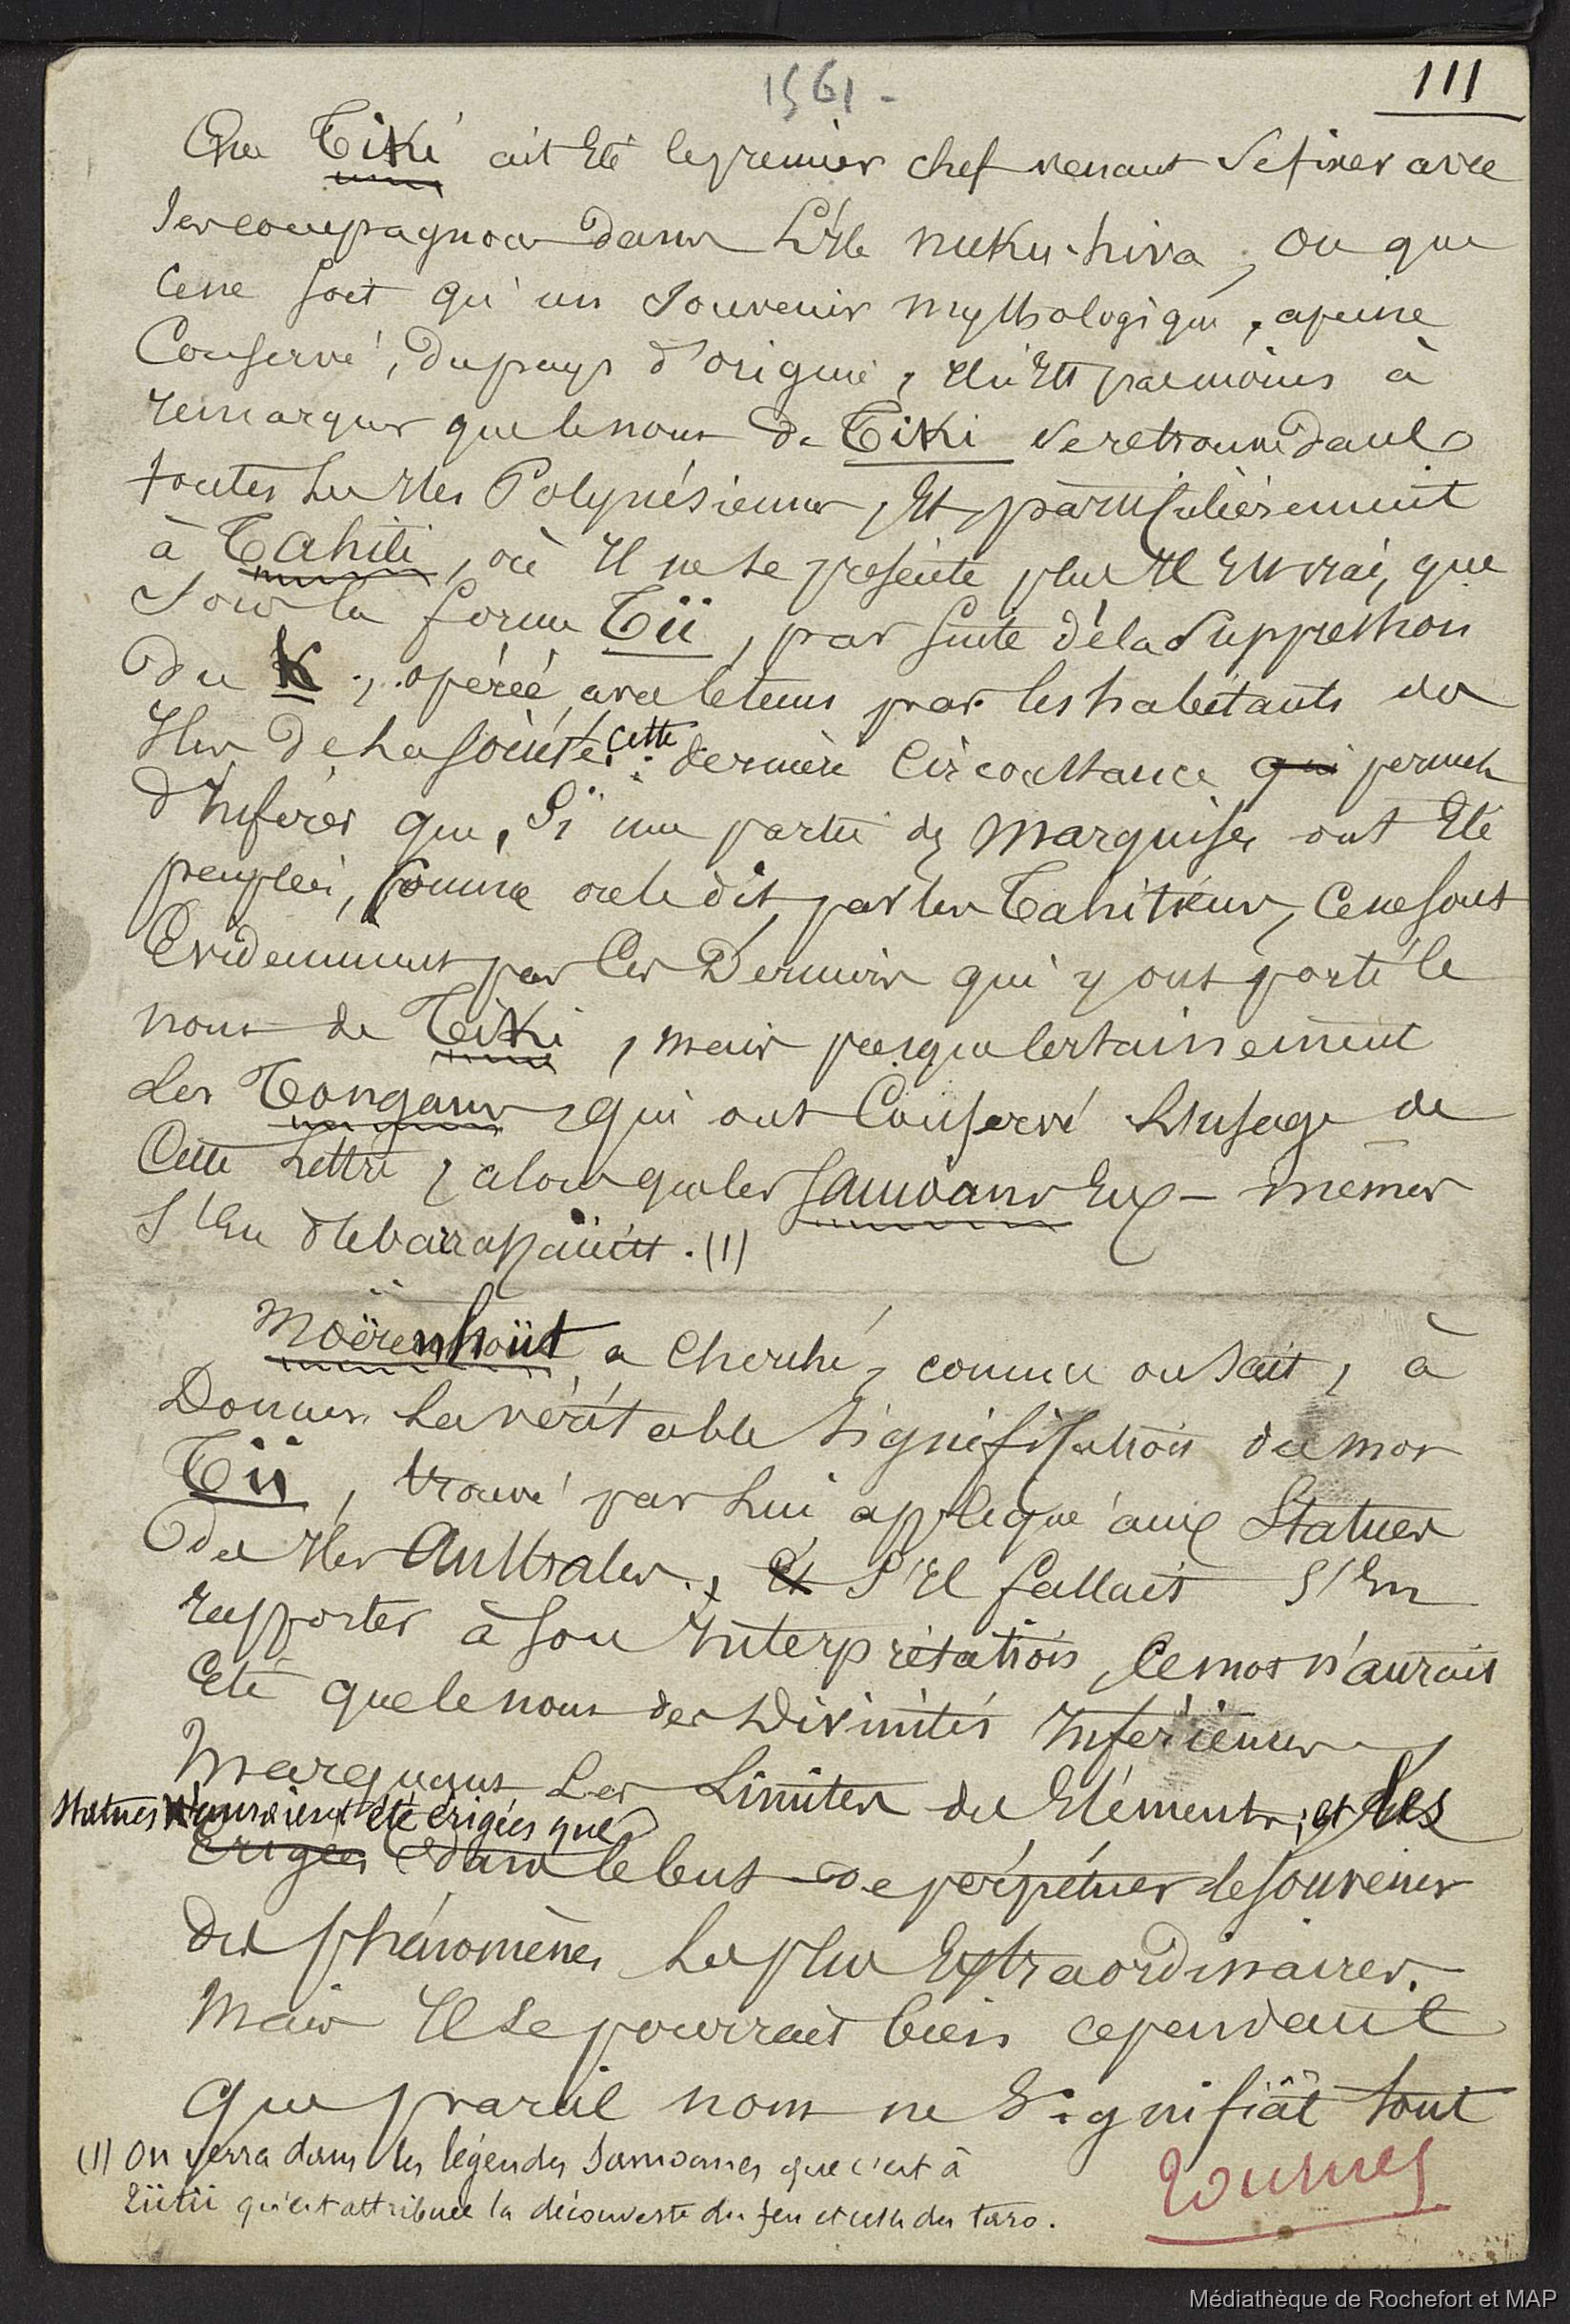 1561 -
111
Que Tiki ait été le premier chef venant se fixer avec
ses compagnons dans l'Ile nuku-hiva, ou que
ce ne soit qu'un souvenir mythologique, à peine
Conservé, du pays d'origine, il n'est pas moins à
remarquer que le nom de Tiki se retrouve dans
toutes les Iles Polynésiennes, et particulièrement
à Tahiti, où Il ne se présente plus Il est vrai, que
sous la forme Tii, par suite de la suppression
du K, opérée avec le tems par les habitants des
Iles de la Société. cette dernière Circonstance qui permet
d'Inférer que, si une partie des Marquises ont été
peuplées, comme on le dit, par les Tahitiens, ce ne sont
Evidemment pas Ces Derniers qui y ont porté le
nom de Tiki, mais presque certainement
les Tongans, qui ont Conservé l'usage de
Cette lettre, alors que les Samoans Eux-mêmes
s'En débarassaient. (1)
Moërenhoüt a Cherché, comme on sait, à
Donner la véritable signification du mot
Tii, trouvé par lui appliqué aux Statues
des Iles Australes, Et S'Il fallait s'En
rapporter à son Interprétation, Ce mot n'aurait
Eté que le nom des Divinités Inférieures,
Marquant les Limites des Eléments; et les
Statues n'auraient été érigées que
Erigées dans le but de perpétuer le souvenir
des phénomènes les plus Extraordinaires.
Mais Il se pourrait bien cependant
que pareil nom ne signifiât tout
(1) On verra dans les légendes Samoanes que c'est à
Tiitii qu'est attribuée la découverte du feu et celle du taro.
tournez
Médiathèque de Rochefort et MAP